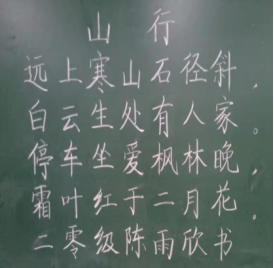 山行
远上寒山石径斜，
白云生处有人家。
停车坐爱枫林晚，
霜叶红于二月花。
二零级陈雨欣书